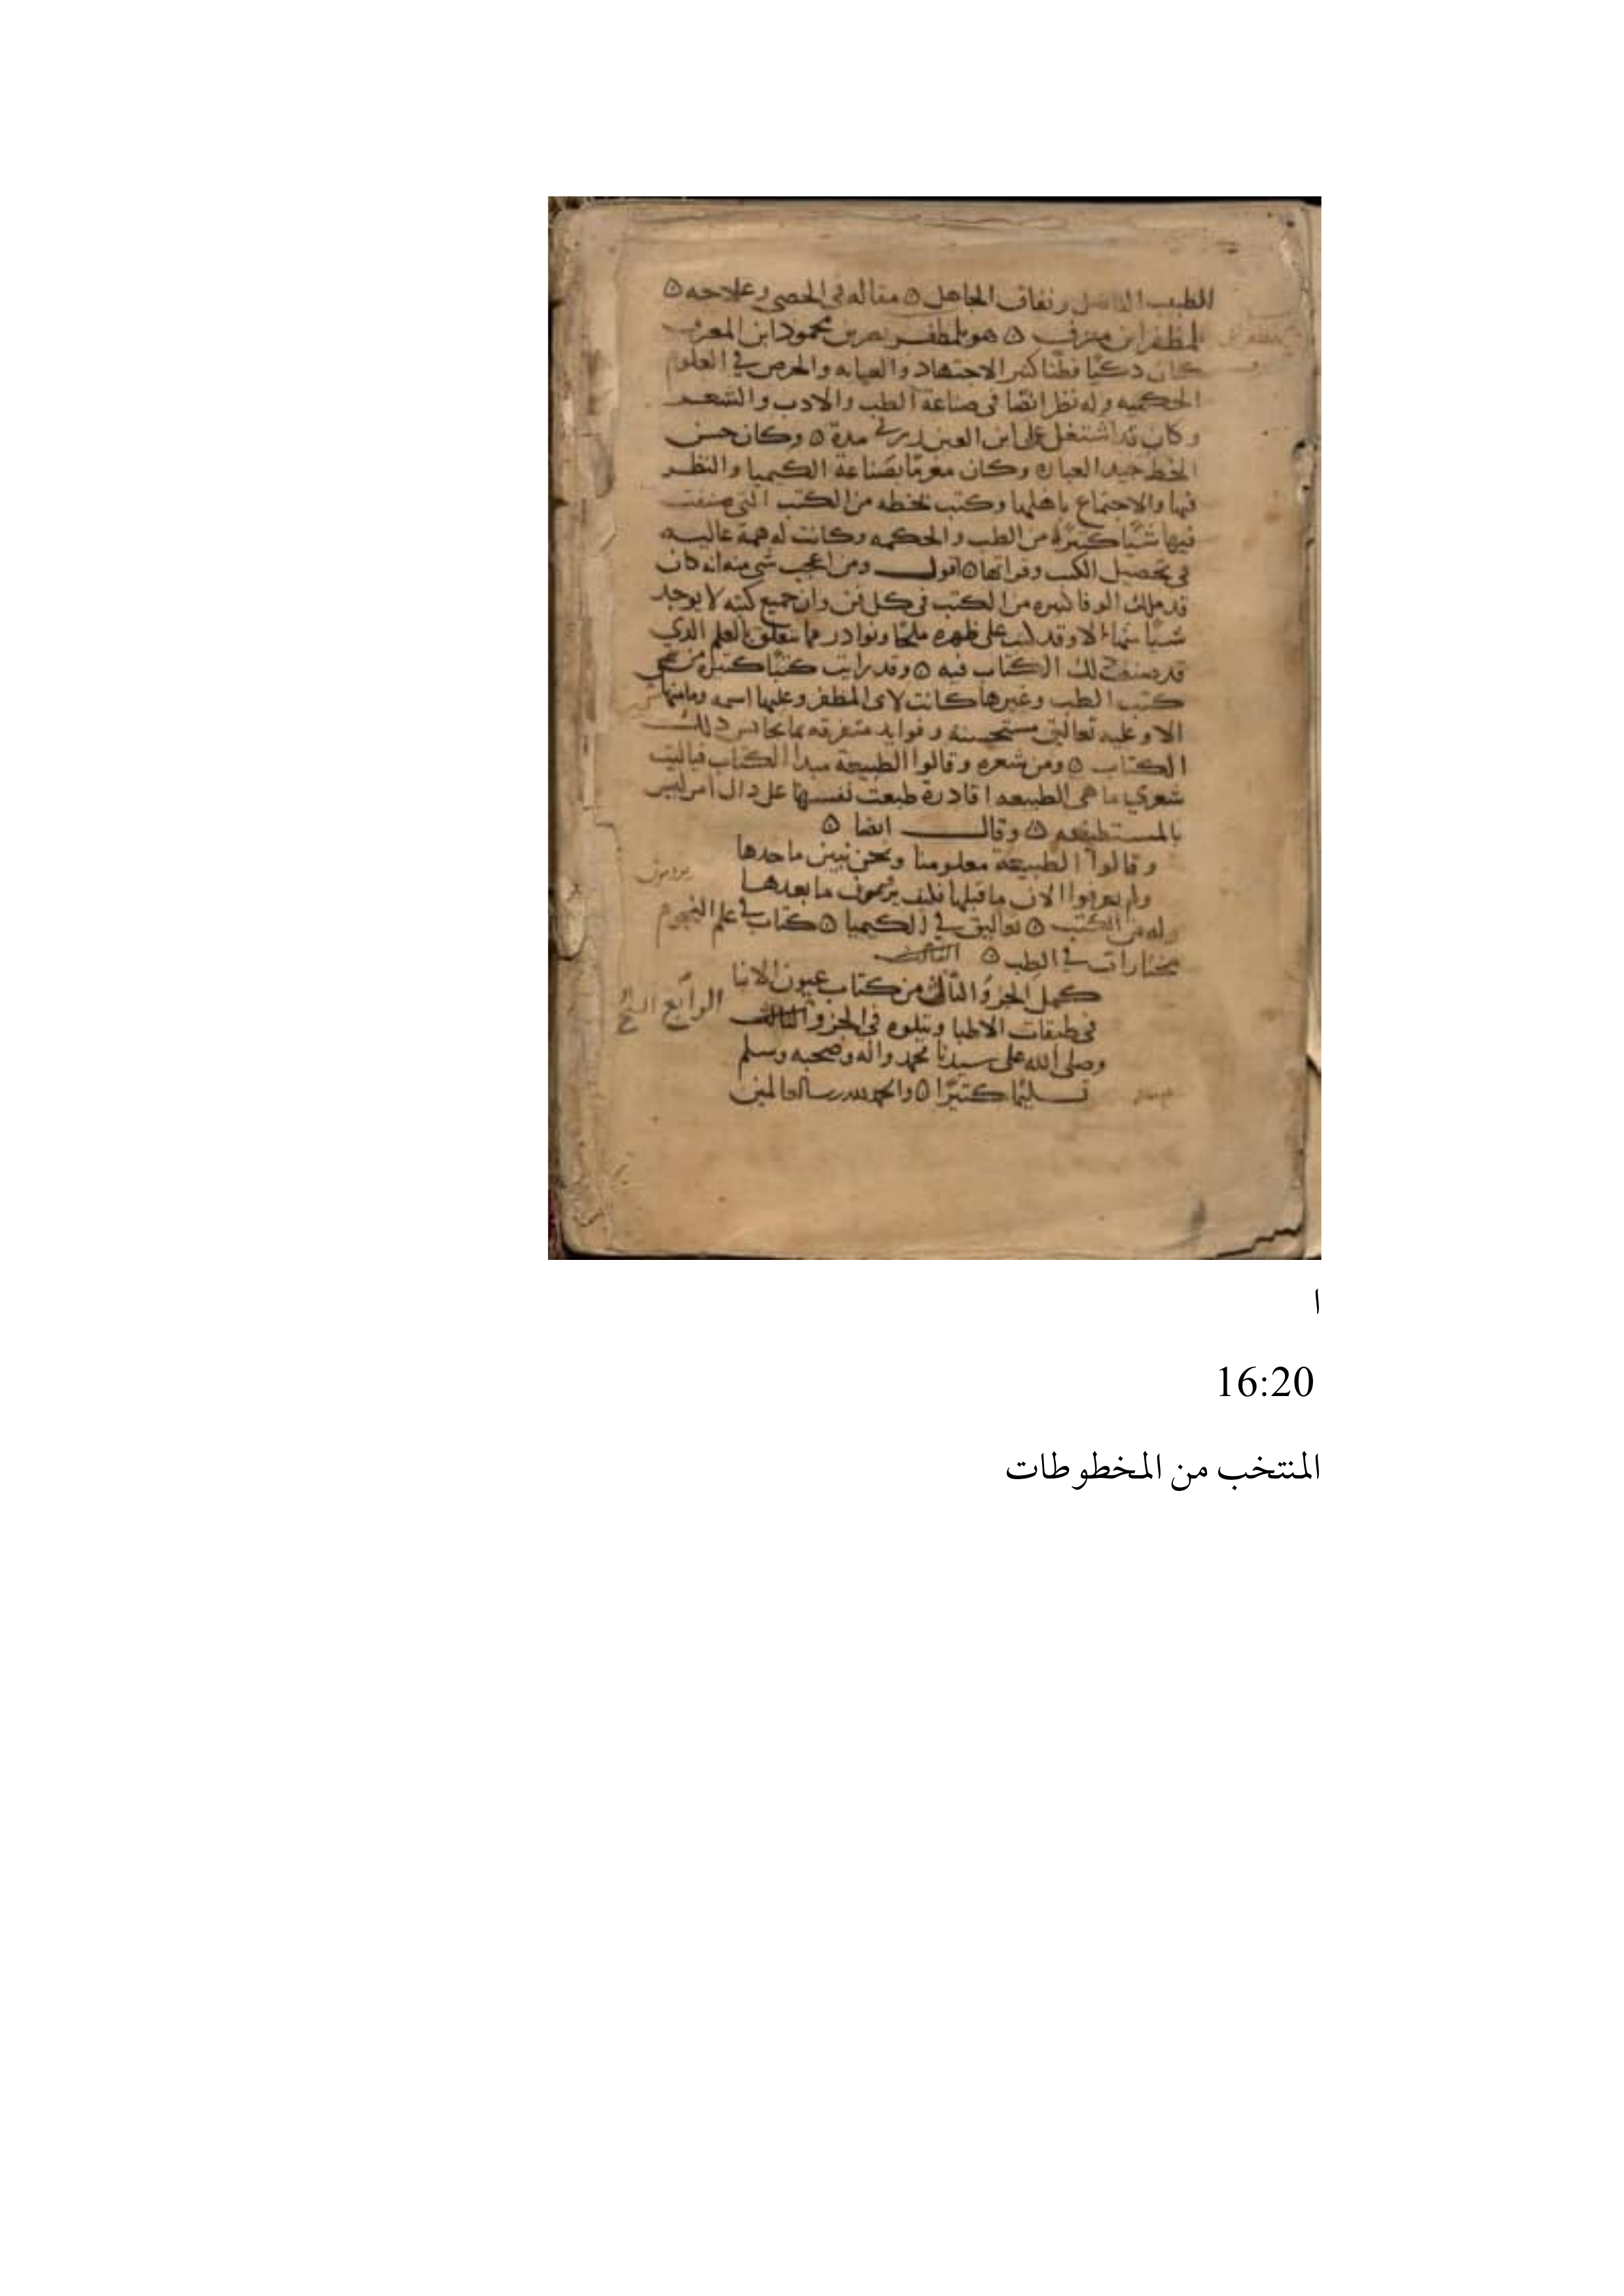 الطبيب الفاضل ونفاق الجاهل ۞ مقاله في الحصى وعلاجه ۞
المظفر ابن معرف ۞ هو بلمظفر نصر بن محمود ابن المعرف
كان دكيا فطنا كثير الاجتهاد والعنايه والحرص في العلوم
الحكميه وله نظر ايضا في صناعة الطب والادب والشعر
وكان قد اشتغل على ابن العين زربي مدة ۞ وكان حسن
الخط جيد العباره وكان مغرما بصناعة الكيميا والنظر
فيها والاجتماع باهلها وكتب بخطه من الكتب التي صنفت
فيها شيا كثيرا من الطب والحكمه وكانت له همة عاليه
في تحصيل الكتب وقراتها ۞ اقول ومن اعجب شي منه انه كان
قد ملك الوفا كثيره من الكتب في كل فن وان جميع كتبه لا يوجد
شيا منها الا وقد كتب على ظهره ملحا ونوادر مما يتعلق بالعلم الذي
قد صنف ذلك الكتاب فيه ۞ وقد رايت كتبا كثيره من
كتب الطب وغيرها كانت لابي المظفر وعليها اسمه وما منها
الا وعليه تعاليق مستحسنة وفوايد متفرقه مما يجانس ذلك
الكتاب ۞ ومن شعره وقالوا الطبيعة مبدا الكتاب فياليت
شعري ما هي الطبيعه اقادرة طبعت نفسها على ذاك ام ليس
بالمستطيعه ۞ وقال ايضا ۞
وقالوا الطبيعة معلومنا ونحن نبين ما حدها
ولم يعرفوا الان ما قبلها فكيف يرمون ما بعدها
وله من الكتب ۞ تعاليق في الكيميا ۞ كتاب في علم النجوم
مختارات في الطب ۞ الثالث
كمل الجزو الثالث من كتاب عيون الانبا
في طبقات الاطبا ويتلوه في الجزو الرابع
وصلى الله على سيدنا محمد واله وصحبه وسلم
تسليما كثيرا ۞ والحمد لله رب العالمين
ا
16:20
المنتخب من المخطوطات